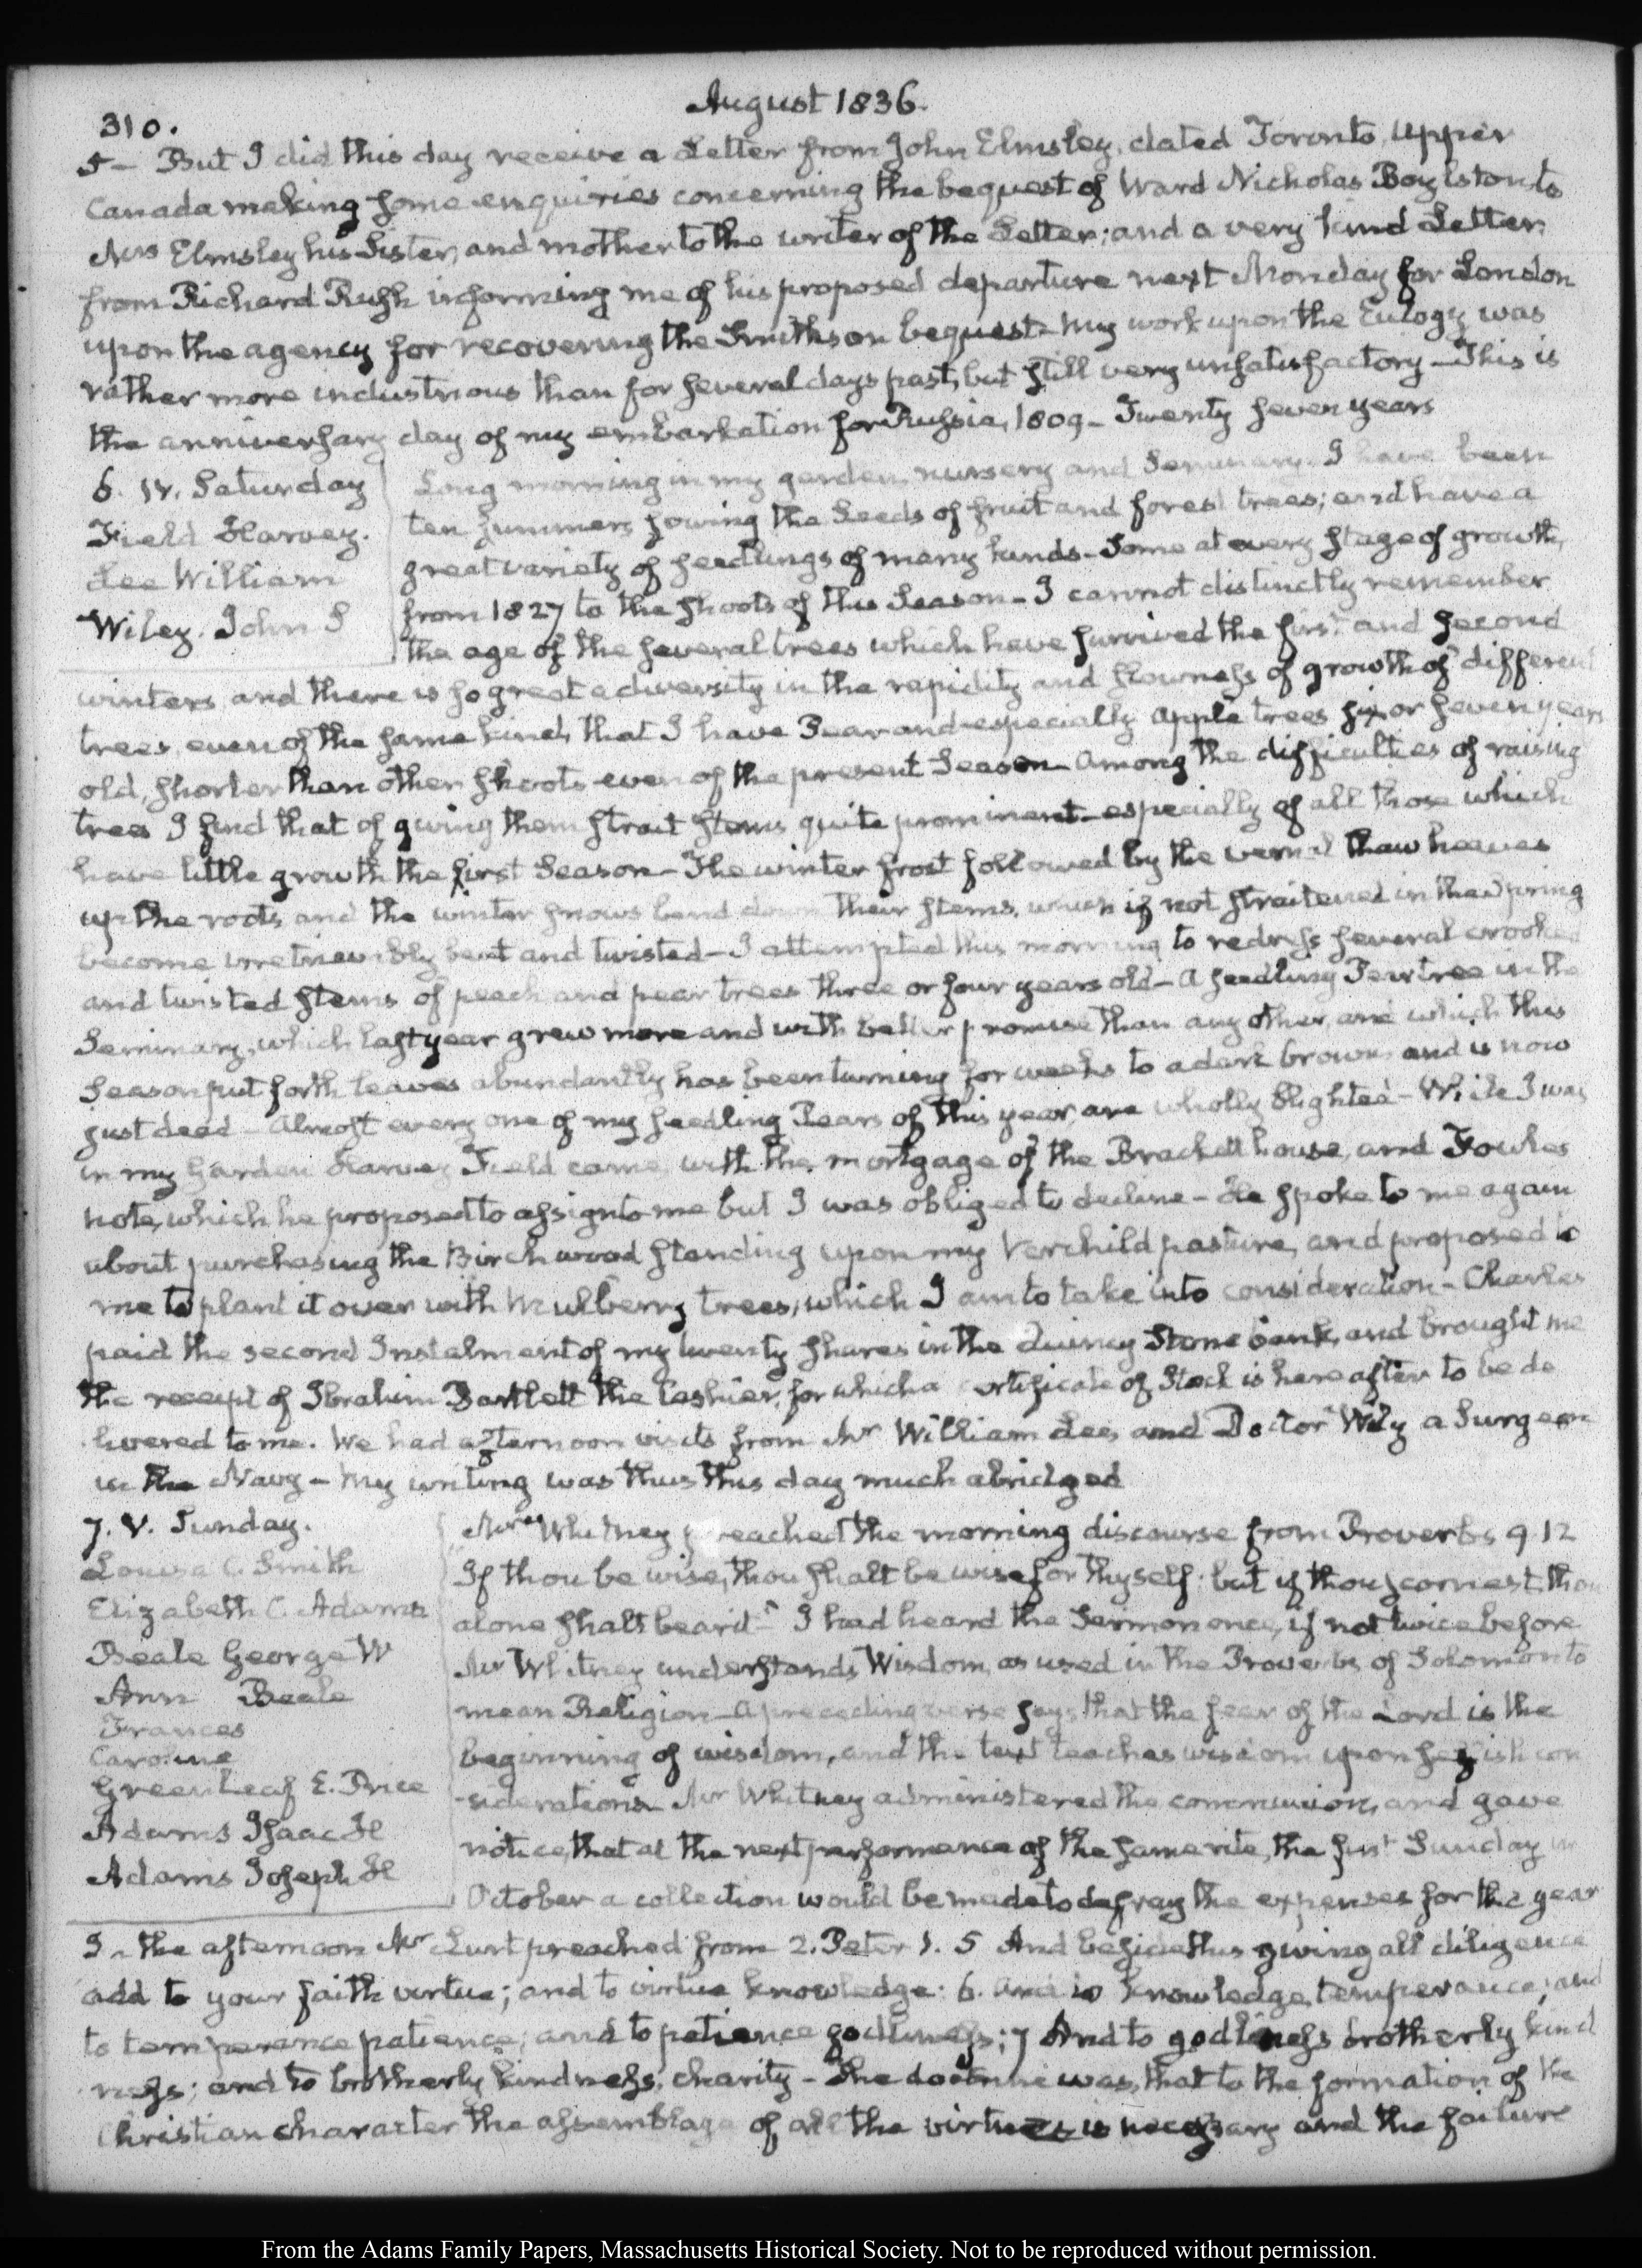 310.
August 1836.
5 - But I did this day receive a Letter from John Elmsley, dated Toronto, Upper
Canada making some enquiries concerning the bequest of Ward Nicholas Boylston to
Mrs Elmsley his Sister, and mother to the writer of the Letter; and a very kind Letter
from Richard Rush informing me of his proposed departure next Monday for London
upon the agency for recovering the Smithson bequest - My work upon the Eulogy was
rather more industrious than for several days past, but still very unsatisfactory - This is
the anniversary day of my embarkation for Russia, 1809 - Twenty seven years
6. IV. Saturday
Field Harvey.
Lee William
Wiley. John S
Long morning in my garden, nursery and Seminary. I have been
ten summers sowing the Seeds of fruit and forest trees; and have a
great variety of seedlings of many kinds - Some at every stage of growth,
from 1827 to the shoots of this Season - I cannot distinctly remember
the age of the several trees which have survived the first and second
winters and there is so great a diversity in the rapidity and slowness of growth of different
trees, even of the same kind, that I have Pear and especially apple trees six or seven years
old, shorter than other shoots even of the present Season - Among the difficulties of raising
trees I find that of giving them strait stems quite prominent - especially of all those which
have little growth the first Season - The winter frost followed by the vernal thaw heaves
up the roots, and the winter snows bend down their stems, which if not straitened in the Spring
become irretrievably bent and twisted - I attempted this morning to redress several crooked
and twisted stems of peach and pear trees three or four years old - A seedling Pear tree in the
Seminary, which last year grew more and with better promise than any other, and which this
Season put forth leaves abundantly has been turning for weeks to a dark brown and is now
just dead - Almost every one of my seedling Pears of this year, are wholly blighted - While I was
in my Garden Harvey Field came with the mortgage of the Brackett house, and Fowles
note, which he proposed to assign to me but I was obliged to decline - He spoke to me again
about purchasing the Birch wood standing upon my Verchild pasture, and proposed to
me to plant it over with Mulberry trees, which I am to take into consideration - Charles
paid the second Instalment of my twenty shares in the Quincy Stone bank, and brought me
the receipt of Ibrahim Bartlett the Cashier, for which a certificate of Stock is hereafter to be de
livered to me. We had afternoon visits from Mr William Lee, and Doctor Wily a Surgeon
in the Navy - My writing was thus this day much abridged
7. V. Sunday.
Louisa C. Smith
Elizabeth C. Adams
Beale George W
Ann Beale
Frances
Caroline
Greenleaf E. Price
Adams Isaac H
Adams Joseph H
Mr Whitney preached the morning discourse from Proverbs 9.12
If thou be wise, thou shalt be wise for thyself: but if thou scornest, thou
alone shalt bear it" I had heard the Sermon once, if not twice before
Mr Whitney understands Wisdom, as used in the Proverbs of Solomon to
mean Religion - A preceding verse says that the fear of the Lord is the
beginning of wisdom, and the text teaches wisdom upon selfish con
siderations - Mr Whitney administered the communion, and gave
notice, that at the next performance of the same rite, the first Sunday in
October a collection would be made to defray the expenses for the year
In the afternoon Mr Lunt preached from 2. Peter 1. 5 And beside this giving all diligence
add to your faith virtue; and to virtue knowledge: 6. And to knowledge, temperance; and
to temperance patience; and to patience godliness; 7 And to godliness brotherly kind
ness; and to brotherly kindness, charity - The doctrine was, that to the formation of the
Christian character the assemblage of all the virtues is necessary and the failure
From the Adams Family Papers, Massachusetts Historical Society. Not to be reproduced without permission.